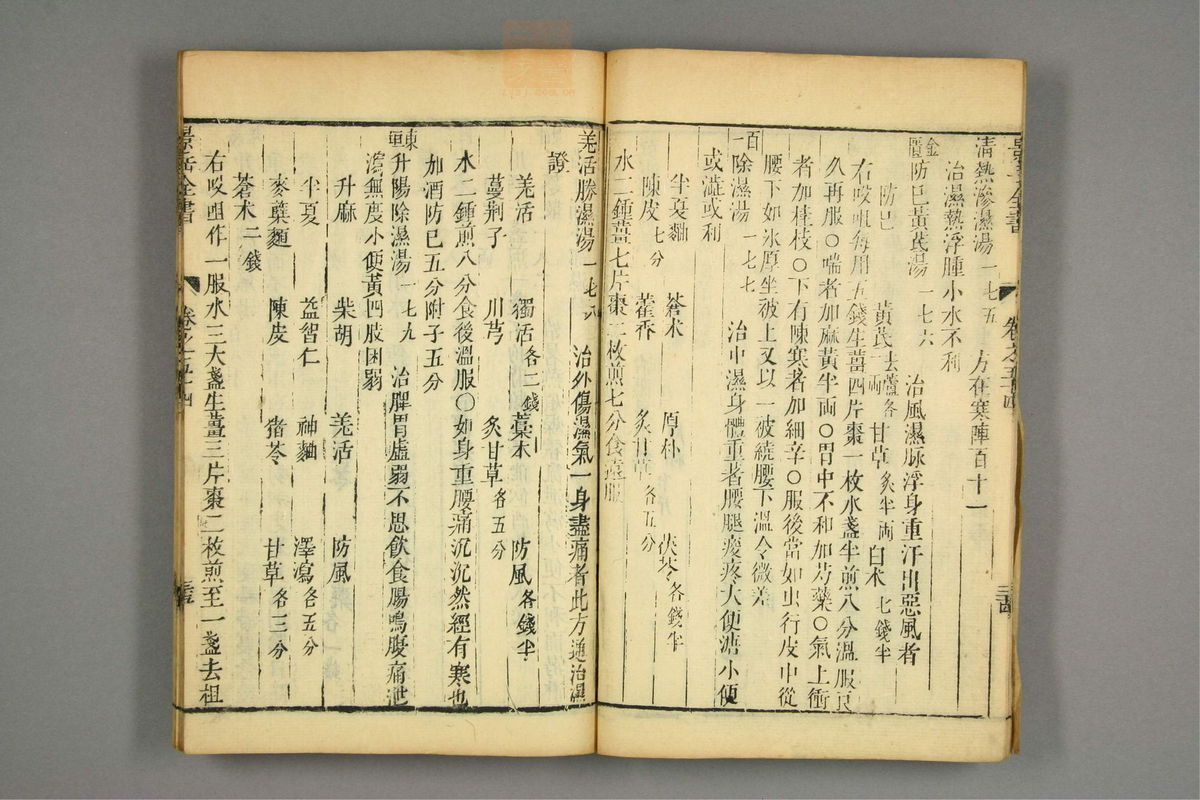 清熱滲濕湯 一七五 方在寒陣百十一
治濕熱浮腫小水不利
金匱防巳黃芪湯 一七六 治風濕脉浮身重汗出惡風者
防巳 黃芪 去蘆各一兩 甘草 炙半兩 白术 七錢半
右㕮咀每用五錢生薑四片棗一枚水盞半煎八分溫服良
久再服○喘者加麻黃半兩○胃中不和加芍藥○氣上衝
者加桂枝○下有陳寒者加細辛○服後當如虫行皮中從
腰下如氷厚坐被上又以一被繞腰下溫令微差
百一除濕湯 一七七 治中濕身體重着腰腿痠疼大便溏小便
或澁或利
半夏麯 蒼术 厚朴 茯苓 各錢半
陳皮 七分 藿香 炙甘草 各五分
水二鍾薑七片棗二枚煎七分食遠服
羌活勝濕湯 一七八 治外傷濕氣一身盡痛者此方通治濕
證
羌活 獨活 各二錢 藁本 防風 各錢半
蔓荆子 川芎 炙甘草 各五分
水二鍾煎八分食後溫服○如身重腰痛沉沉然經有寒也
加酒防巳五分附子五分
東垣升陽除濕湯 一七九 治脾胃虛弱不思飲食腸鳴腹痛泄
瀉無度小便黃四肢困弱
升麻 柴胡 羌活 防風
半夏 益智仁 神麯 澤瀉 各五分
麥蘖麯 陳皮 猪苓 甘草 各三分
蒼术 二錢
右㕮咀作一服水三大盞生薑三片棗二枚煎至一盞去柤
景岳全書 卷之五十四 三五